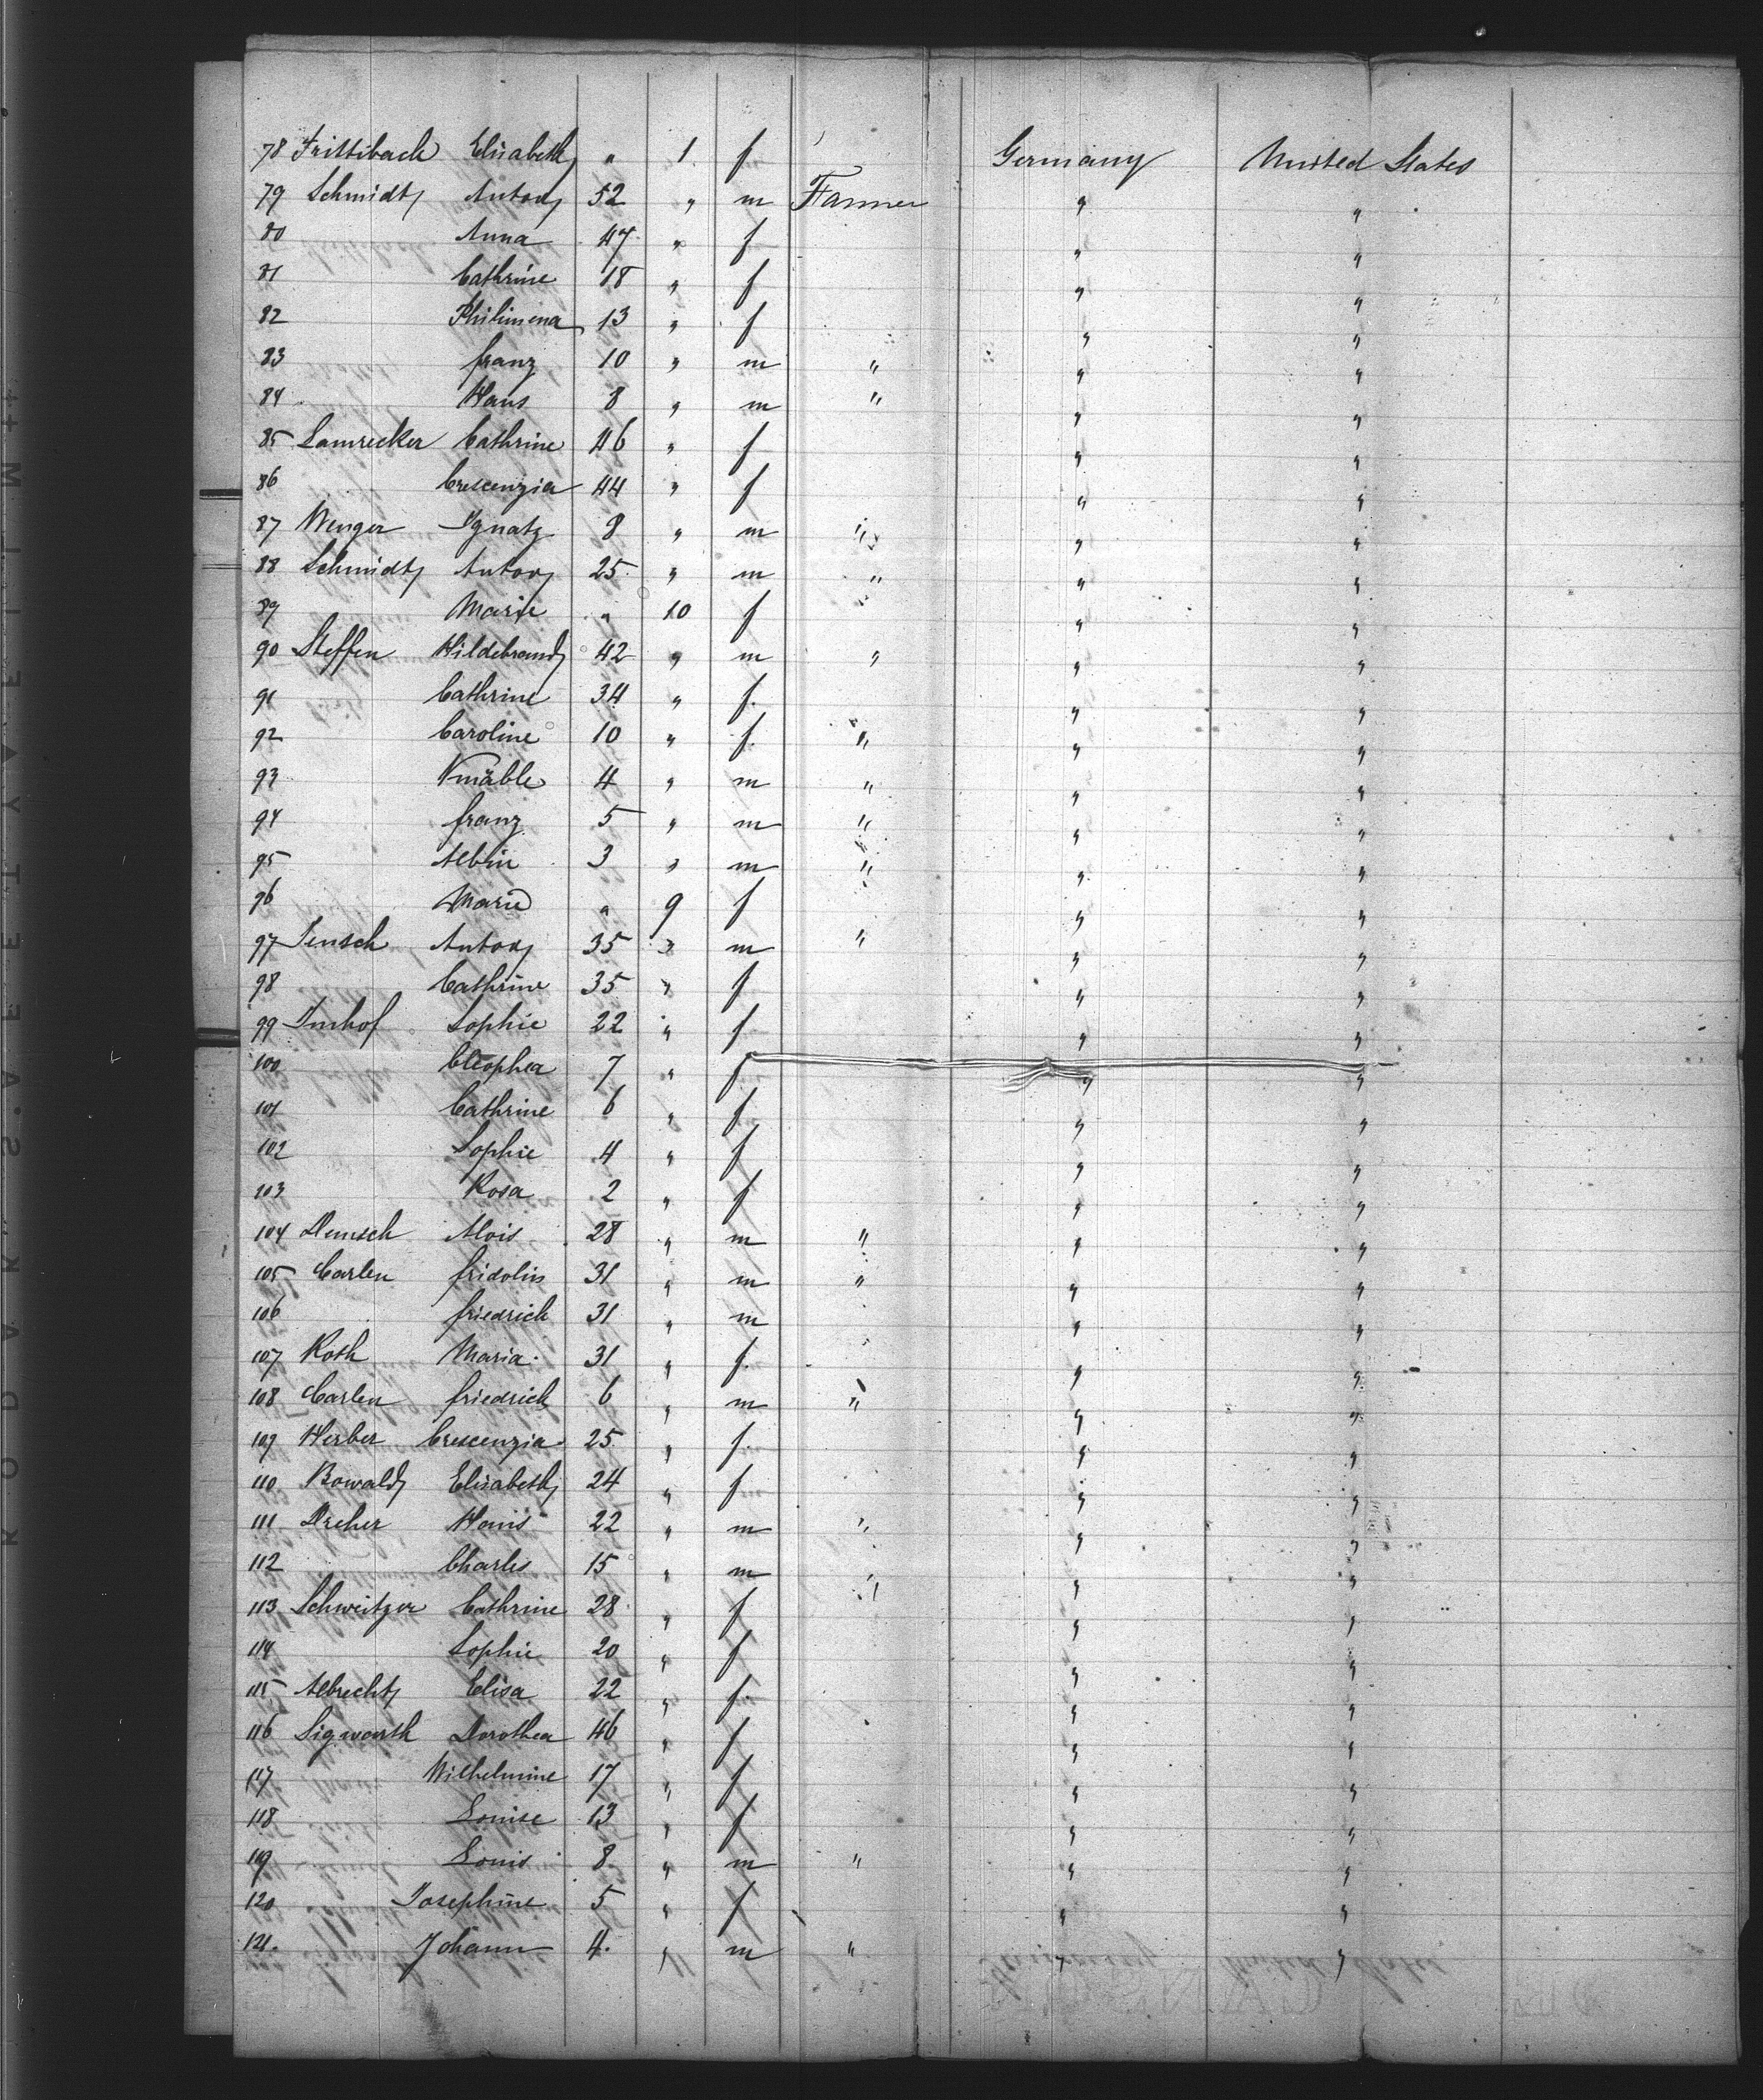 78 Frittibach Elisabeth " 1 f Germany United States
79 Schmidt Anton 52 " m Farmer " "
80 Anna 47 " f " "
81 Cathrine 18 " f " "
82 Philimena 13 " f " "
83 franz 10 " m " " "
84 Hans 8 " m " " "
85 Lamrecker Cathrine 46 " f " "
86 Crescenzia 44 " f " "
87 Wenger Ignatz 8 " m " " "
88 Schmidt Anton 25 " m " " "
89 Marie " 10 f " "
90 Steffen Hildebrand 42 " m " " "
91 Cathrine 34 " f. " "
92 Caroline 10 " f. " " "
93 4 " m " " "
94 franz 5 " m " " "
95 Albin 3 " m " " "
96 Marie " 9 f " "
97 Jensch Anton 35 " m " " "
98 Cathrine 35 " f " "
99 Imhof Sophie 22 " f " "
100 Cleophea 7 " f " "
101 Cathrine 6 " f " "
102 Sophie 4 " f " "
103 Rosa 2 " f " "
104 Alois 28 " m " " "
105 Carlen fridolin 31 " m " " "
106 friedrich 31 " m " "
107 Roth Maria 31 " f. " "
108 Carlen friedrich 6 " m " " "
109 Herber Crescenzia 25 " f. " "
110 Bowald Elisabeth 24 " f " "
111 Dreher Hans 22 " m " " "
112 Charles 15 " m " " "
113 Schweitzer Cathrine 28 " f " "
114 Sophie 20 " f " "
115 Albrecht Elisa 22 " f. " "
116 Sigwarth Dorothea 46 " f " "
117 Wilhelmine 17 " f " "
118 Louise 13 " f " "
119 Louis 8 " m " " "
120 Josephine 5 " f " "
121. Johann 4. " m " " "